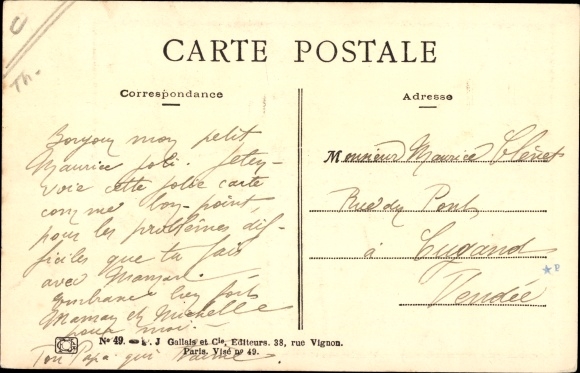 U
Th.
CARTE POSTALE
Correspondance
Adresse
Bonjour mon petit
Maurice joli. Je t'en-
voie cette jolie carte
comme bon-point,
pour les problèmes dif-
ficiles que tu fais
avec Maman.
Embrasse bien fort
Maman et Michelle
pour moi.
Ton Papa qui t'aime.
Monsieur Maurice
Rue du Pont
à
Vendée
No 49. J Gallais et Cie, Editeurs. 38, rue Vignon.
Paris. Visé no 49.